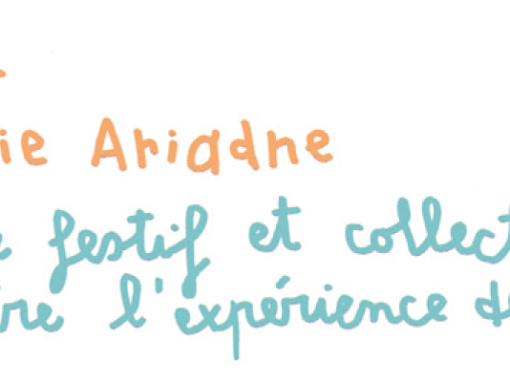 ie Ariadne
festif et collect
re l'expérience de